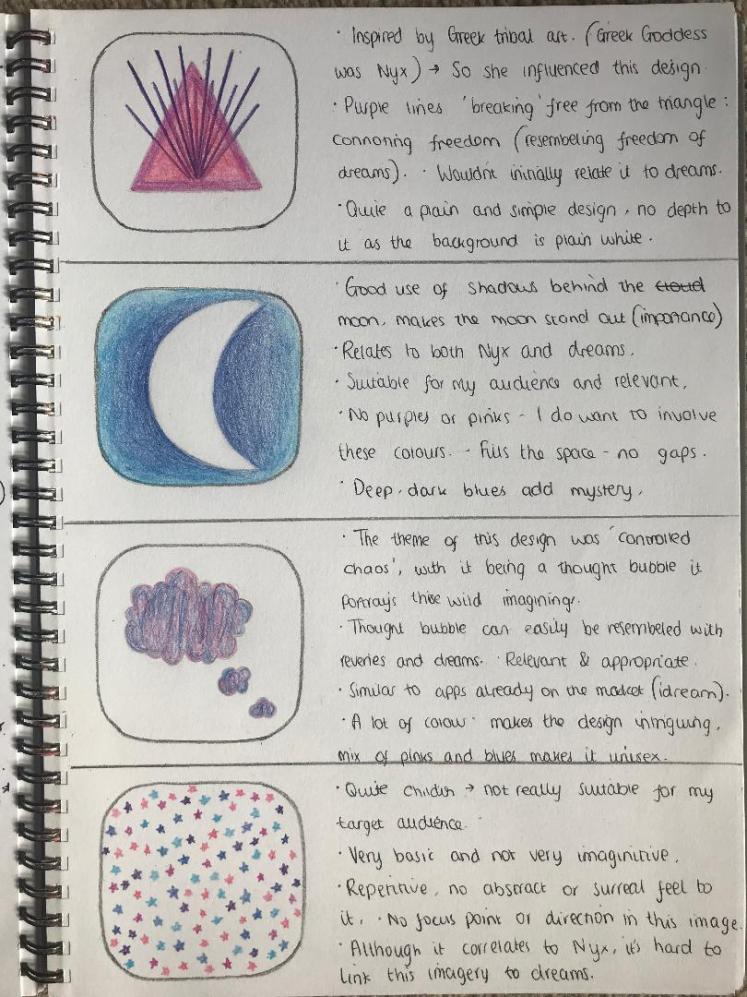 · Inspired by Greek tribal art. (Greek Goddess
was Nyx) → So she influenced this design.
· Purple lines 'breaking' free from the triangle :
connoting freedom (resembeling freedom of
dreams). · Wouldn't initially relate it to dreams.
· Quite a plain and simple design, no depth to
it as the background is plain white.
· Good use of shadows behind the cloud
moon, makes the moon stand out (importance)
· Relates to both Nyx and dreams.
· Suitable for my audience and relevant.
· No purples or pinks - I do want to involve
these colours. - Fills the space - no gaps.
· Deep, dark blues add mystery.
· The theme of this design was 'controlled
chaos', with it being a thought bubble it
portrays wild imaginings.
· Thought bubble can easily be resembeled with
reveries and dreams. · Relevant & appropriate.
· Similar to apps already on the market (idream).
· A lot of colour · makes the design intriguing,
mix of pinks and blues makes it unisex.
· Quite childish → not really suitable for my
target audience.
· Very basic and not very imaginitive.
· Repetitive, no abstract or surreal feel to
it. · No focus point or direction in this image.
· Although it correlates to Nyx, it's hard to
link this imagery to dreams.